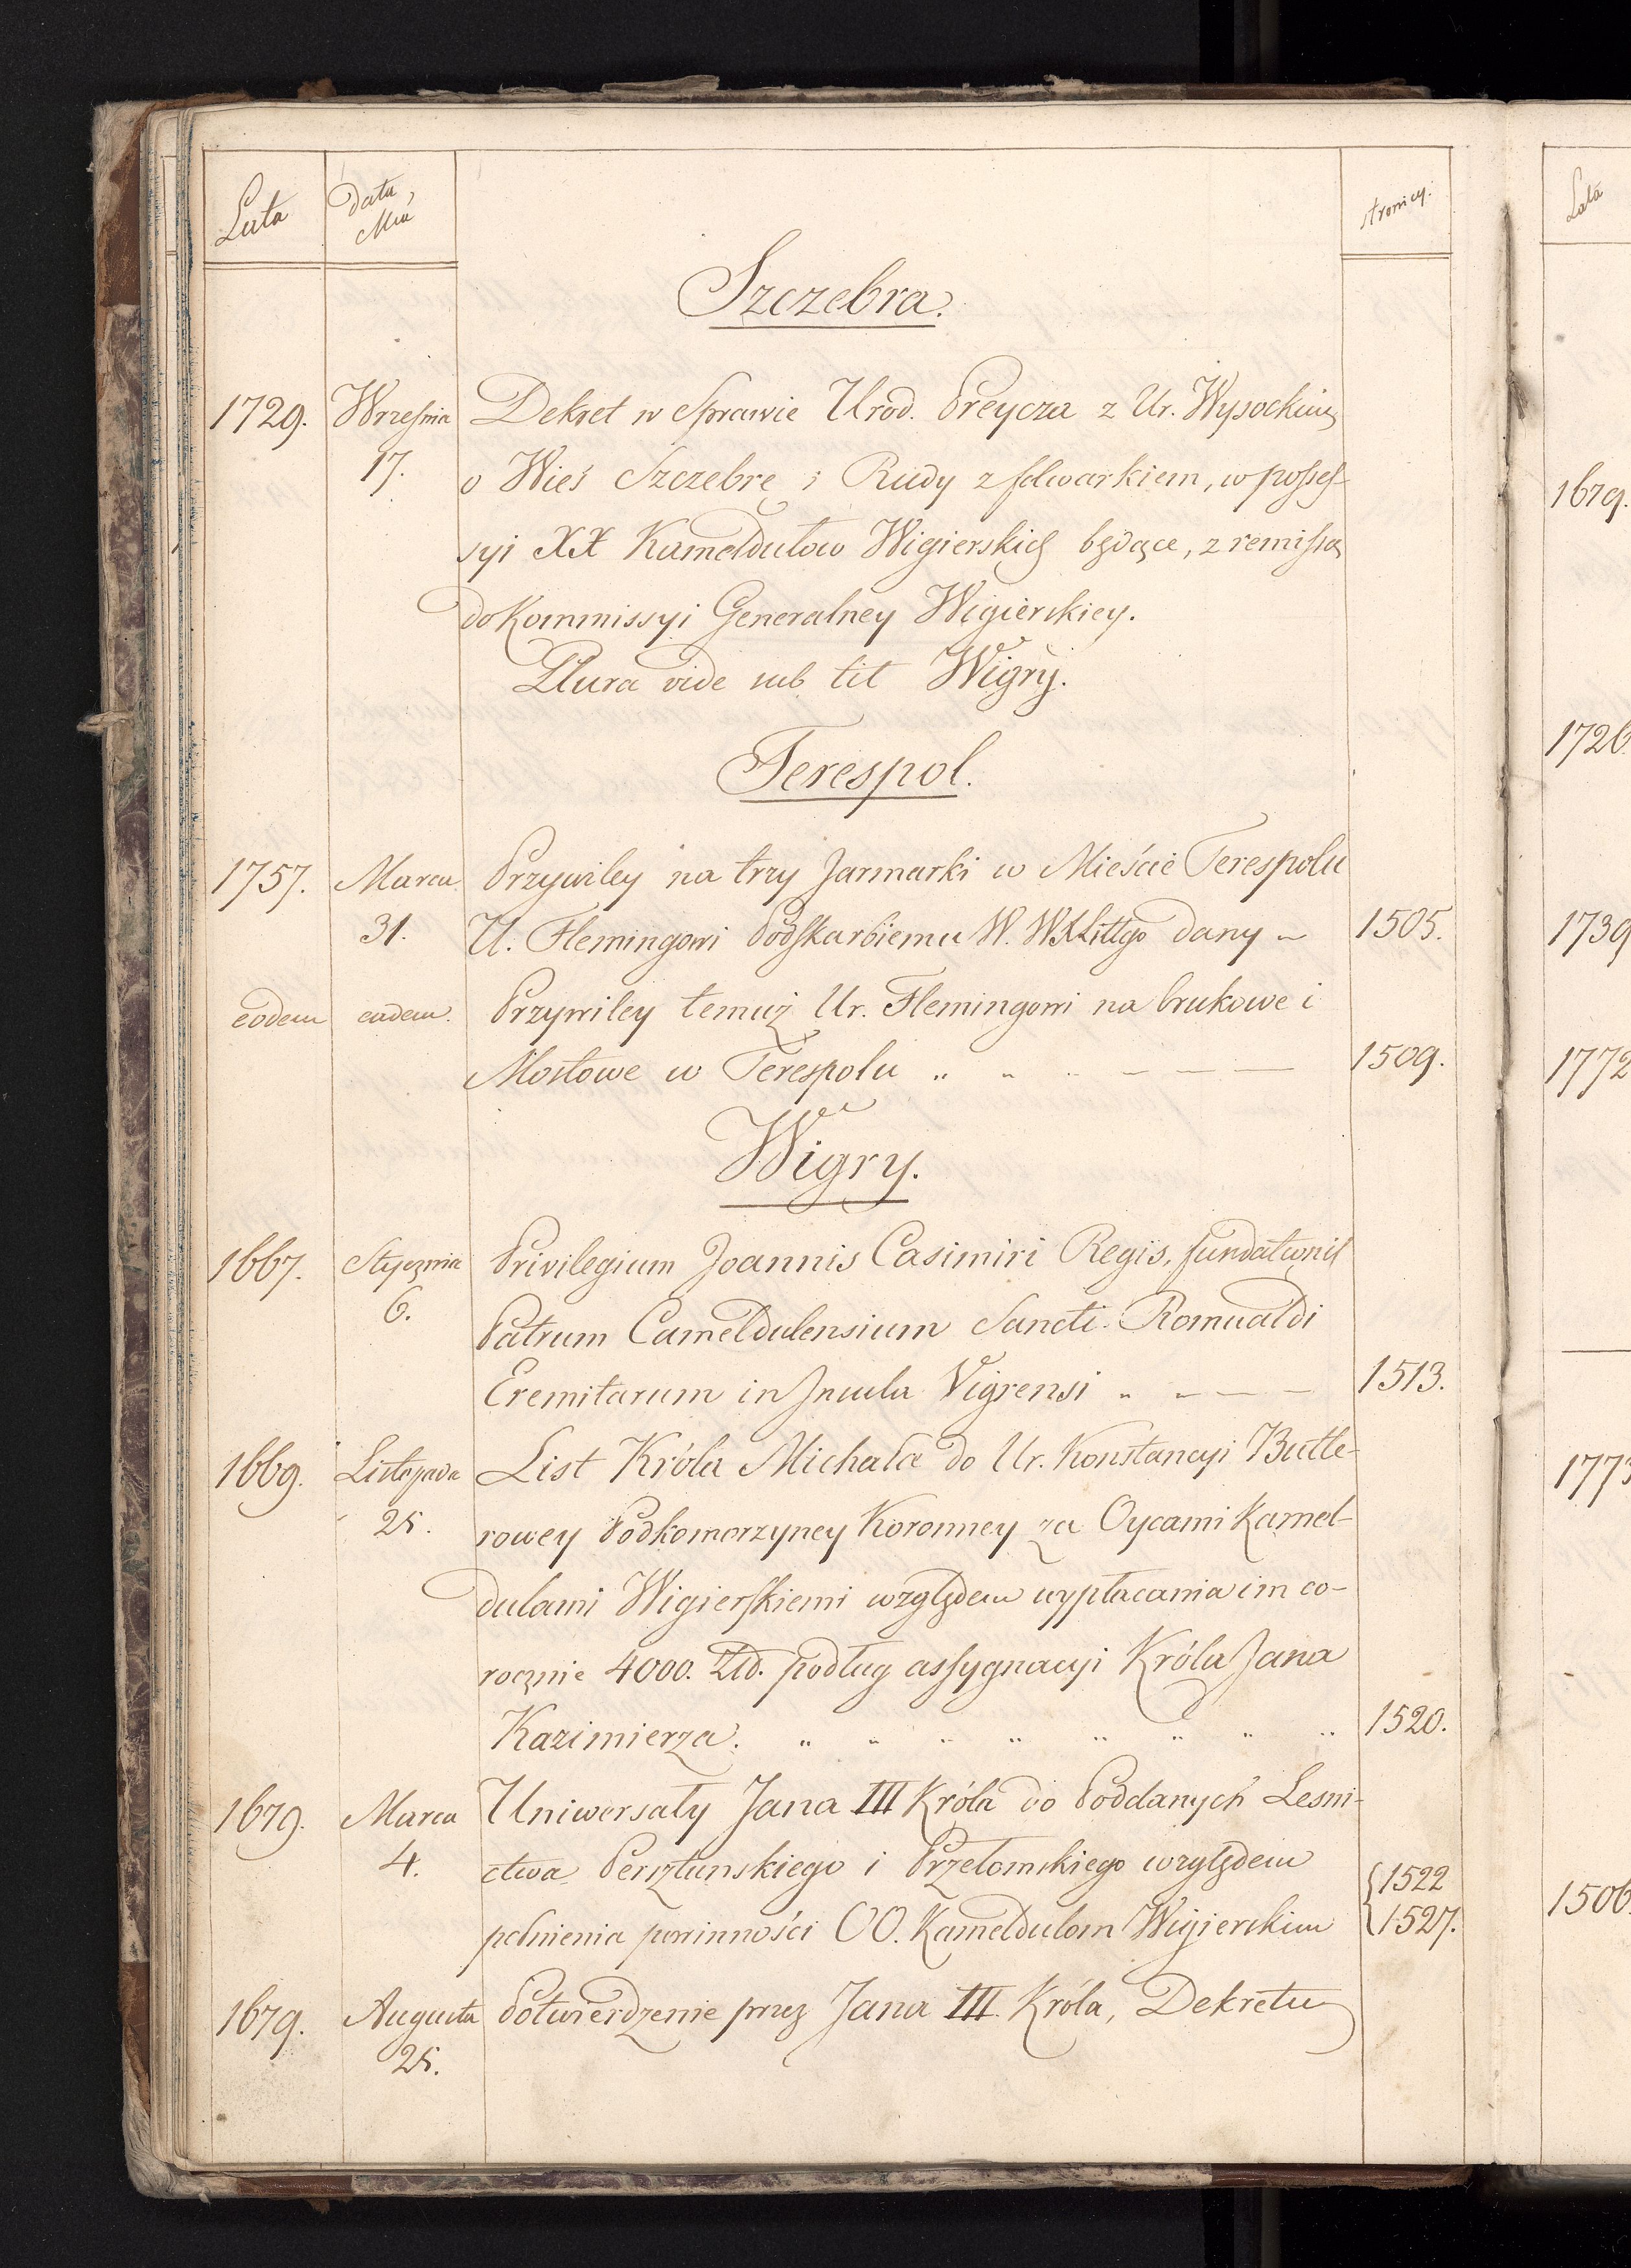 Lata
Data
Mca
stronicy.
Szczebra.
1729. Września Dekret w Sprawie Urod. Preycza z Ur. Wysockim
17. o Wieś Szczebrę i Rudy z folwarkiem, w posses-
syi XX Kamedułow Wigierskich będące, z remissą
do Kommissyi Generalney Wigierskiey.
Plura vide sub tit Wigry.
Terespol.
1757. Marca Przywiley na trzy Jarmarki w Mieście Terespolu
31. U. Flemingowi Podskarbiemu W. WXLittgo dany 1505.
eodem eadem. Przywiley temuż Ur. Flemingowi na brukowe i
Mostowe w Terespolu 1509.
Wigry.
1667. Stycznia Privilegium Joannis Casimiri Regis, fundationis
6. Patrum Cameldulensium Sancti Romualdi
Eremitarum in Insula Vigrensi 1513.
1669. Listopada List Króla Michała do Ur. Konstancyi Butle-
25. rowey Podkomorzyney Koronney za Oycami Kamel-
dulami Wigierskiemi względem wypłacania im co-
rocznie 4000. Zł. podług assygnacyi Króla Jana
Kazimierza. 1520.
1679. Marca Uniwersały Jana III Króla do Poddanych Lesni-
4. ctwa Persztunskiego i Przełomskiego względem {1522
pełnienia powinności OO. Kameldulom Wigierskim {1527.
1679. Augusta Potwierdzenie przez Jana III. Króla, Dekretu
25.
Lata
1679.
1726.
1739
1772
1773
1506.